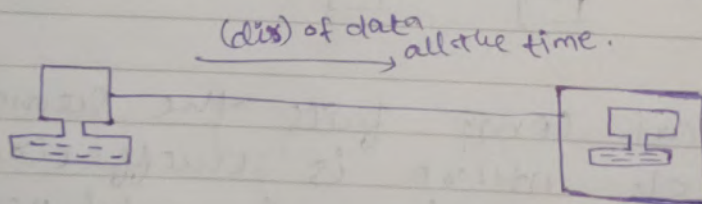 (dir) of data
all the time.